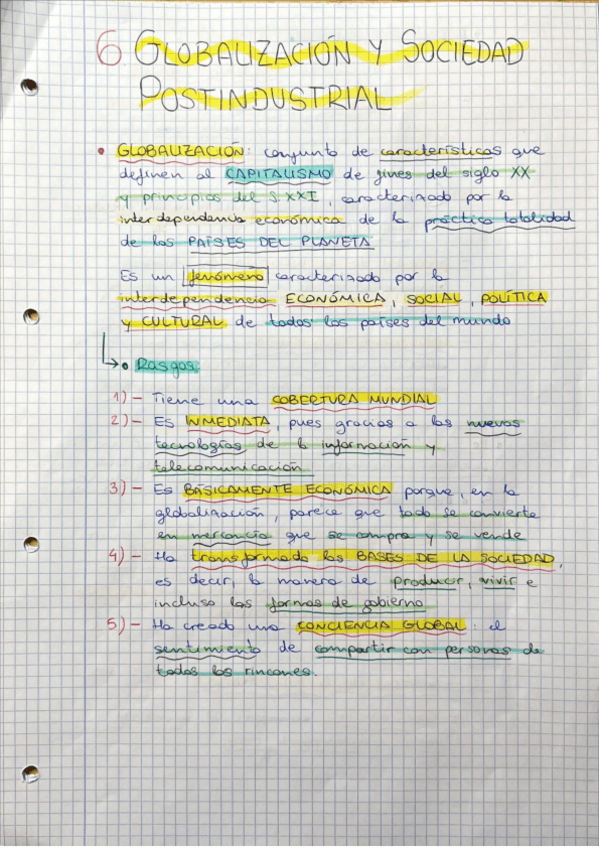 6 GLOBALIZACIÓN Y SOCIEDAD
POSTINDUSTRIAL
• GLOBALIZACIÓN: conjunto de características que
definen al CAPITALISMO de fines del siglo XX
y principios del s.XXI, caracterizado por la
interdependencia económica de la práctica totalidad
de los PAÍSES DEL PLANETA
Es un fenómeno caracterizado por la
interdependencia ECONÓMICA, SOCIAL, POLÍTICA
y CULTURAL de todos los países del mundo
• Rasgos
1) - Tiene una COBERTURA MUNDIAL
2) - Es INMEDIATA, pues gracias a las nuevas
tecnologías de la información y
telecomunicación
3) - Es BÁSICAMENTE ECONÓMICA porque, en la
globalización, parece que todo se convierte
en mercancía que se compra y se vende
4) - Ha transformado las BASES DE LA SOCIEDAD,
es decir, la manera de producir, vivir e
incluso las formas de gobierno
5) - Ha creado una CONCIENCIA GLOBAL: el
sentimiento de compartir con personas de
todos los rincones.